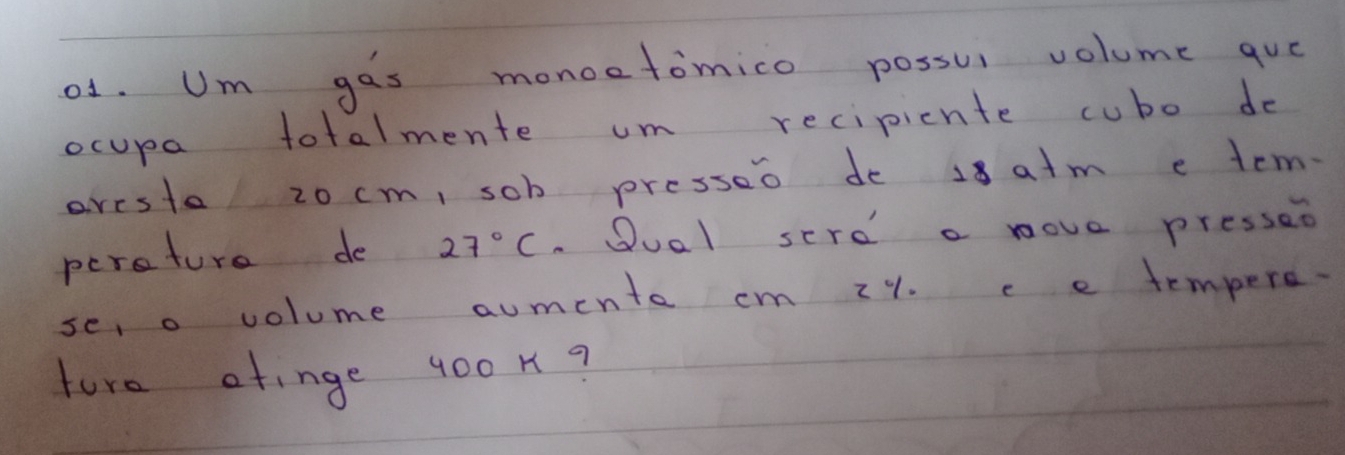 01. Um gás monoatômico possui volume que
ocupa totalmente um recipiente cubo de
aresta 20 cm, sob pressão de 18 atm e tem-
peratura de 27°C. Qual será a nova pressão
se, o volume aumenta em 2% e a tempera-
tura atinge 400 K?